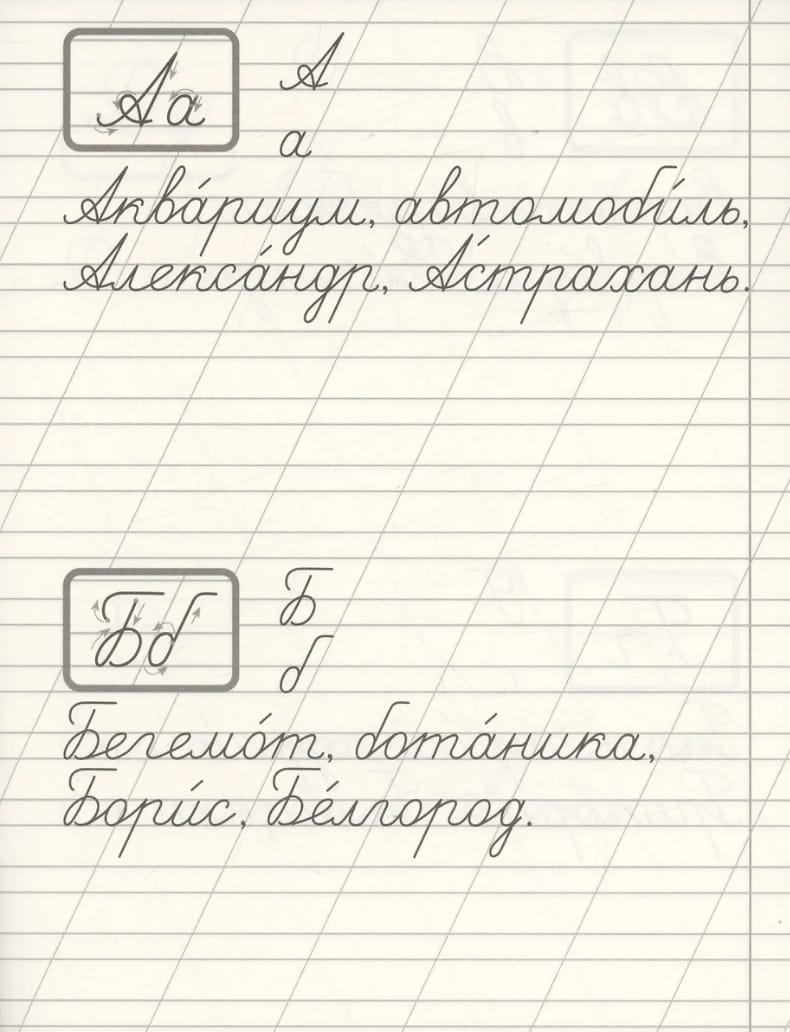 Аа А
а
Аква́риум, автомоби́ль,
Алекса́ндр, А́страхань.
Бб Б
б
Бегемо́т, бота́ника,
Бори́с, Бе́лгород.